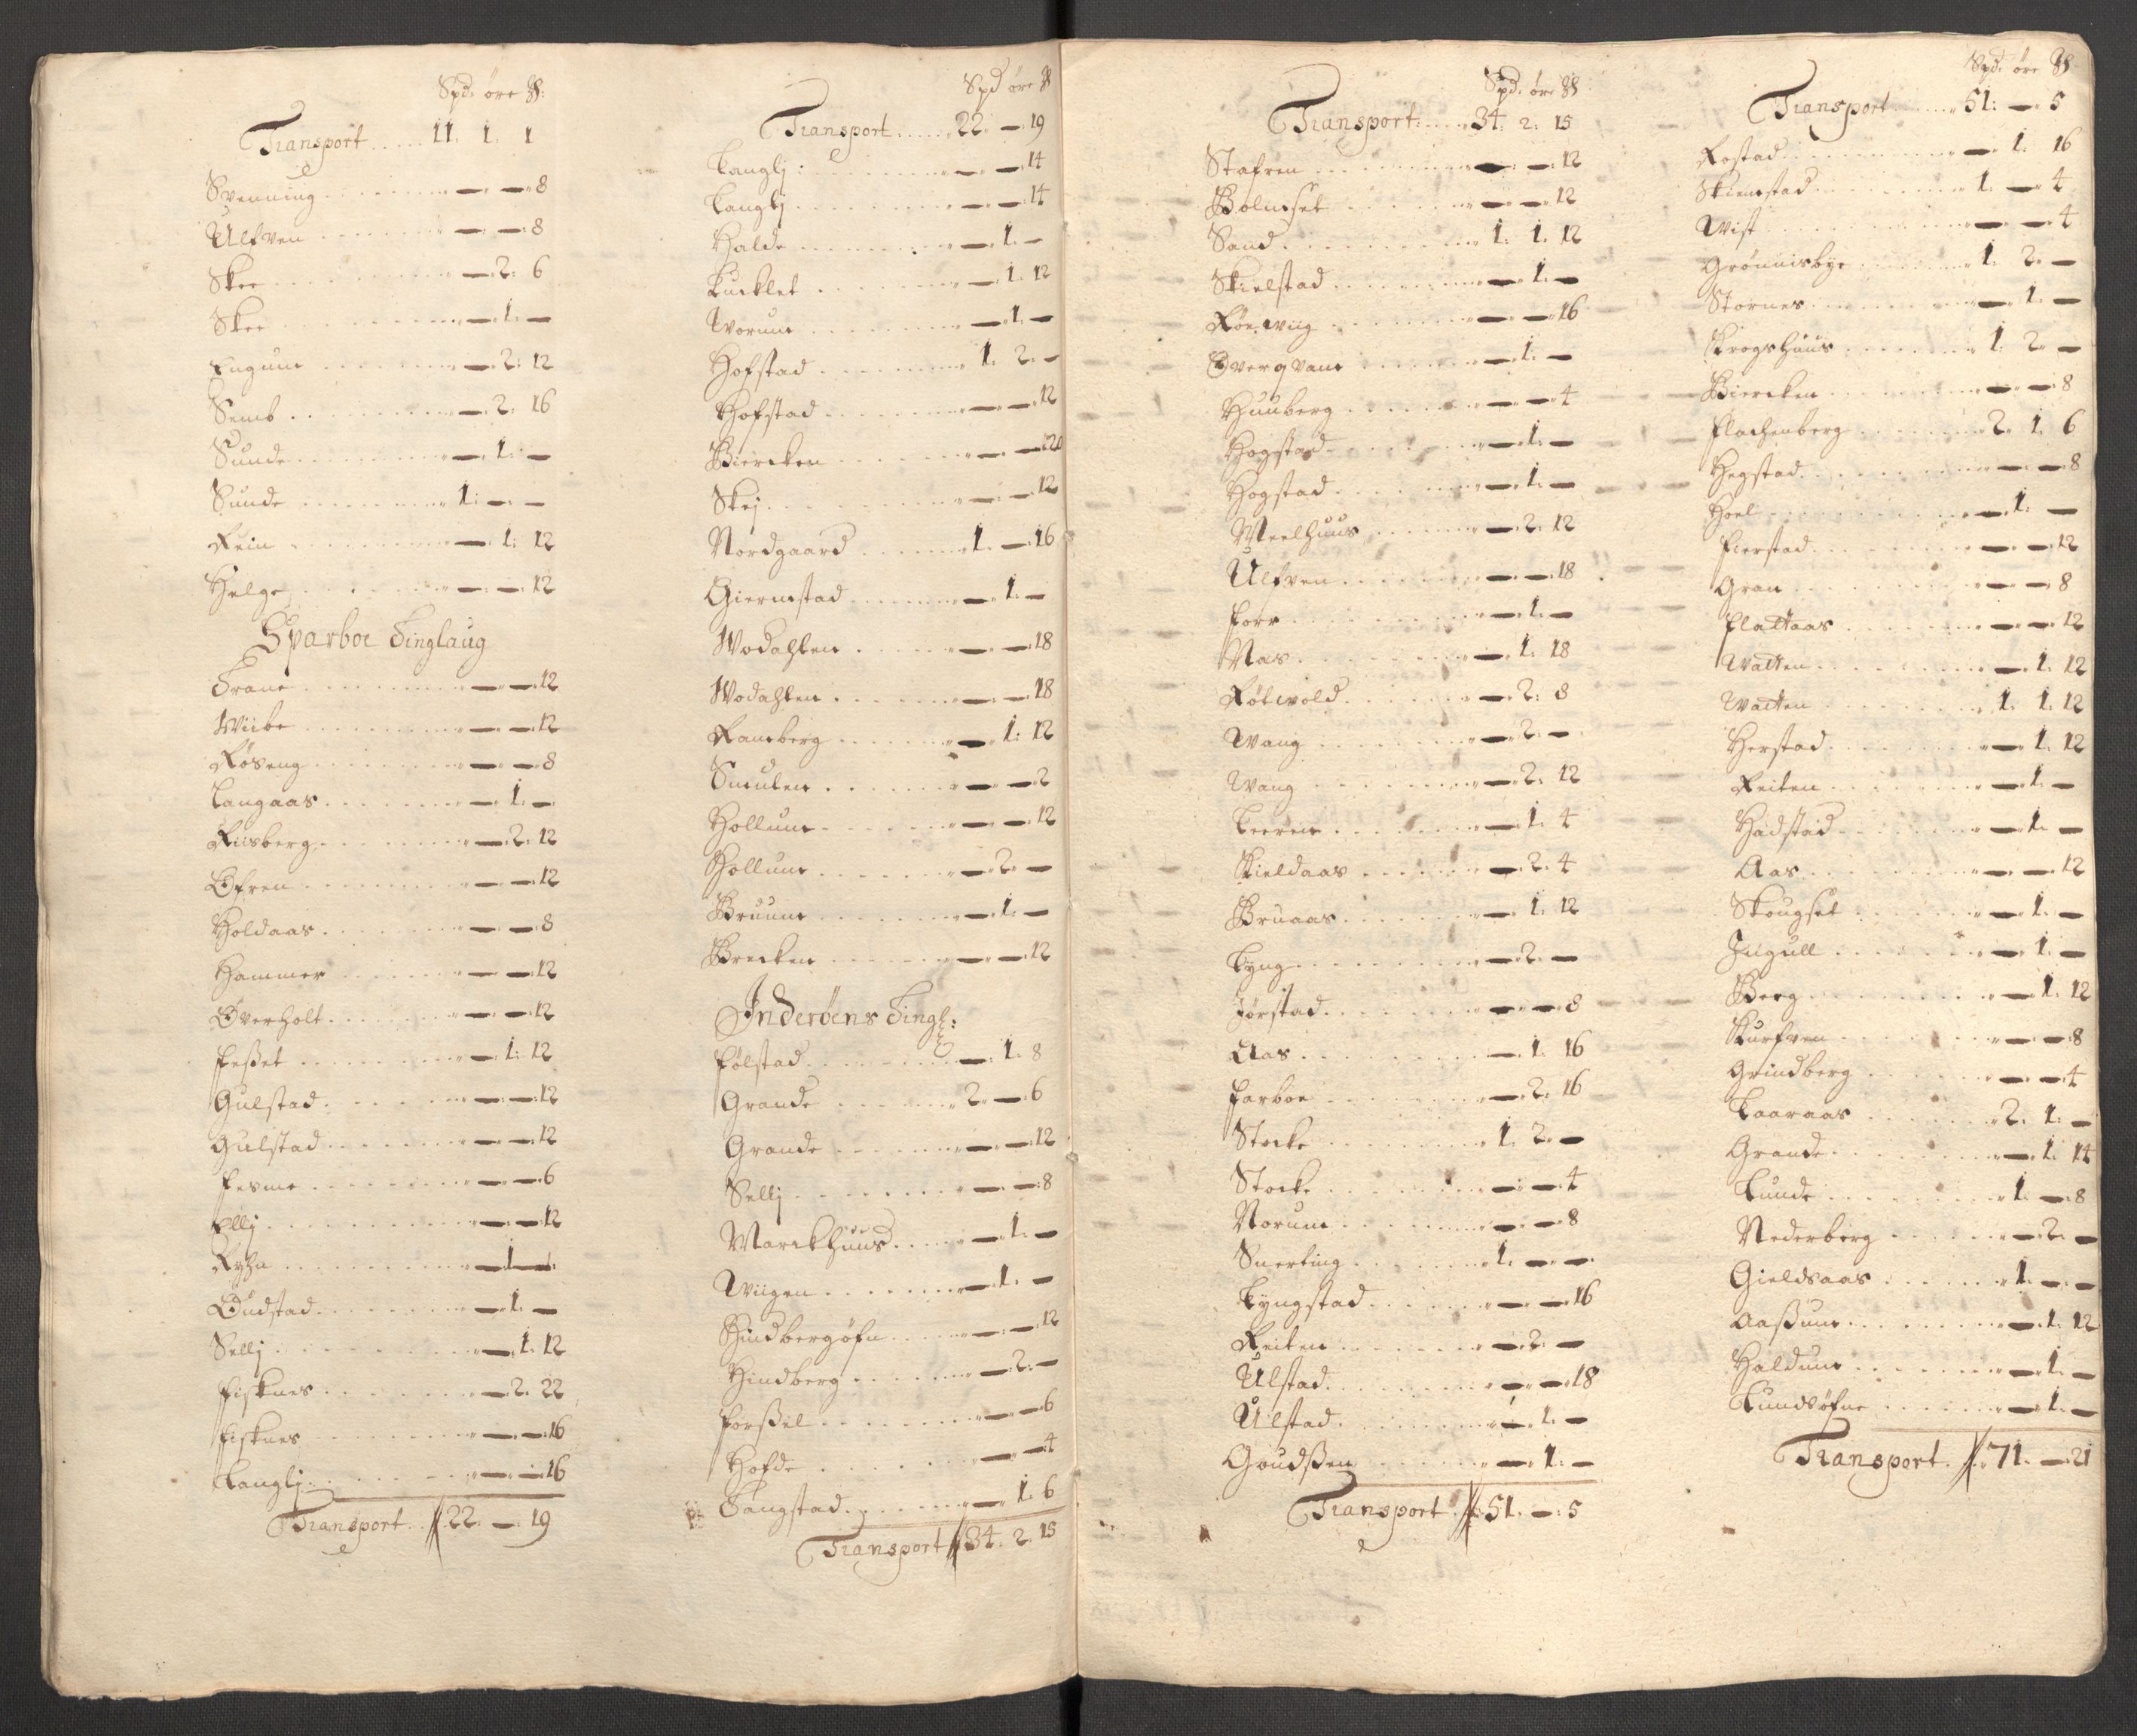 Spd. öre ß:
Transport ..... 11. 1. 1
Svenning — — 8
Ulfven — — 8
Skee — 2: 6
Skee — 1: —
Engum — 2: 12
Semb — 2: 16
Sunde — 1: —
Sunde 1: — —
Rein — 1: 12
Helge — — 12
Sparboe Tinglaug
Trane — — 12
Wiibe — — 12
Röseng — — 8
Langaas — 1: —
Riisberg — 2: 12
Öfren — — 12
Holdaas — — 8
Hammer — — 12
Överholt — — 12
Leßet — 1: 12
Gulstad — — 12
Gulstad — — 12
Lesme — — 6
Ellj — — 12
Ryhn — 1 —
Öudstad — 1: —
Sellj — 1: 12
Fisknes — 2: 22
Fisknes — — 16
Langlj — — 16
Transport // 22: — 19
Spd öre ß
Transport ..... 22: — 19
Langlj: — — 14
Langlj — — 14
Halde — 1: —
Lucklet — 1: 12
Worum — 1: —
Hofstad 1: 2: —
Hofstad — — 12
Biercken — — 20
Skej — — 12
Nordgaard 1: — 16
Giermstad — 1: —
Wodahlen — — 18
Wodahlen — — 18
Ramberg — 1: 12
Smulen — — 2
Hollum — — 12
Hollum — 2: —
Bruum — 1: —
Brecken — — 12
Inderöens Tingl:
Fölstad — 1: 8
Grande 2: — 6
Grande — — 12
Sellj — — 8
Marckhuus — 1: —
Wiigen — 1: —
Hindbergöfn — — 12
Hindberg — 2: —
Forßel — — 6
Hofde — — 4
Tangstad — 1: 6
Transport // 34: 2: 15
Spd. öre ß
Transport: ..... 34: 2: 15
Stafren — — 12
Bolmset — — 12
Sand 1: 1: 12
Skielstad — 1: —
Röe wiig — — 16
Överqvam — 1: —
Huuberg — — 4
Hogstad — 1: —
Hogstad — 1: —
Meelhuus — 2: 12
Ulfven — — 18
Forr — 1: —
Nas — 1: 18
Rötwold — 2: 8
Wang — 2: —
Wang — 2: 12
Leerem — 1: 4
Kieldaas — 2: 4
Bruaas — 1: 12
Lyng — 2: —
Jörstad — — 8
Aas — 1: 16
Farboe — 2: 16
Stocke 1: 2: —
Stocke — — 4
Norum — — 8
Snerting 1: — —
Lyngstad — — 16
Reiten — 2: —
Ulstad — — 18
Ulstad — 1: —
Goudßen — 1: —
Transport // 51: — 5
Spd. öre ß
Transport 51: — 5
Rostad — 1: 16
Skiemstad 1: — 4
Wist — — 4
Grönnisbye 1: 2: —
Stornes — 1: —
Krogshuus 1: 2: —
Biercken — — 8
Flachenberg 2: 1: 6
Hegstad — — 8
Hoel — 1: —
Fierstad — — 12
Gran — — 8
Flattaas — — 12
Watten — 1: 12
Watten 1: 1: 12
Herstad — 1: 12
Reiten — 1: —
Hadstad — 1: —
Aas — — 12
Skougset — 1: —
Jngull — 1: —
Berg — 1: 12
Kurfven — — 8
Grindberg — — 4
Kaaraas 2: 1: —
Grande — 1: 14
Lunde 1: — 8
Nederberg — 2: —
Gieldsaas 1: — —
Aaßum — 1: 12
Haldum — 1: —
Lundsöfne — 1: —
Transport // 71: — 21